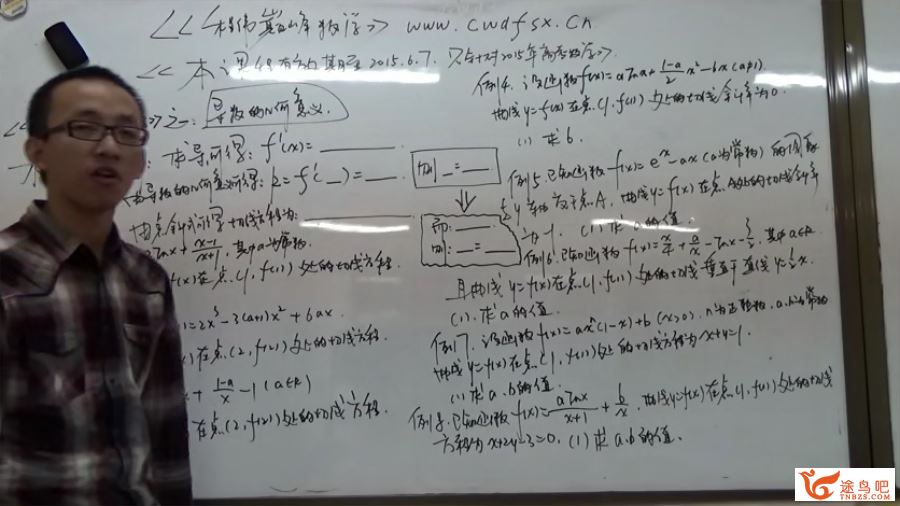 <<程伟巅峰数学>> www.cwdfsx.cn
<<本课程有效期至2015.6.7.只针对2015年高考数学>>.
>之一: 导数的几何意义.
求导可得: f'(x)=
由导数的几何意义可得: k=f'( )= .
由点斜式可得切线方程为:
lnx+\frac{x-1}{x+1}, 其中a为常数.
f(x)在点(1,f(1))处的切线方程
)=2x³-3(a+1)x²+6ax
)在点(2,f(2))处的切线方程.
+\frac{1-a}{x}-1(a∈R)
在点(2,f(2))处的切线方程.
则 =
而:
则: =
例4. 设函数f(x)=alnx+\frac{1-a}{2}x²-bx(a≠1)
曲线y=f(x)在点(1,f(1))处的切线斜率为0.
(1) 求b.
例5. 已知函数f(x)=e^x-ax(a为常数)的图象
与y轴交于点A, 曲线y=f(x)在点A处的切线斜率
为-1. (1)求a的值.
例6. 已知函数f(x)=\frac{x}{4}+\frac{a}{x}-lnx-\frac{3}{2}, 其中a∈R
且曲线y=f(x)在点(1,f(1))处的切线垂直于直线y=\frac{1}{2}x.
(1). 求a的值.
例7. 设函数f(x)=ax^n(1-x)+b(x>0), n为正整数, a.b为常数
曲线y=f(x)在点(1,f(1))处的切线方程为x+y=1.
(1)求a.b的值.
例8. 已知函数f(x)=\frac{alnx}{x+1}+\frac{b}{x}, 曲线y=f(x)在点(1,f(1))处的切线
方程为x+2y-3=0. (1)求a.b的值.
途鸟吧
TNBZS.COM